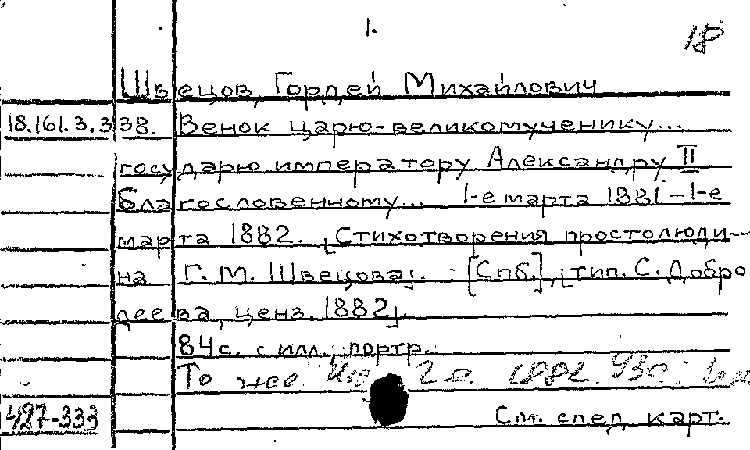 1. 18
Швецов, Гордей Михайлович
18.161.3.338. Венок царю-великомученику...
государю императору Александру II
Благословенному... 1-е марта 1881-1-е
марта 1882. [Стихотворения простолюди-
на Г. М. Швецова]. [Спб.], [тип. С. Добро
деева, ценз. 1882].
84 с. с илл., портр.
То же. 2 е. 1882. 93 с.
427-333 См. след. карт.